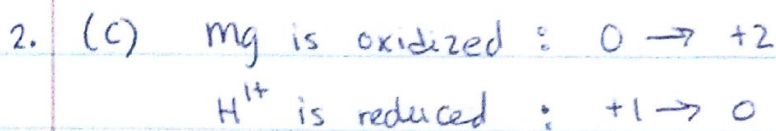 2. (C) Mg is oxidized : 0 → +2
H¹⁺ is reduced : +1 → 0